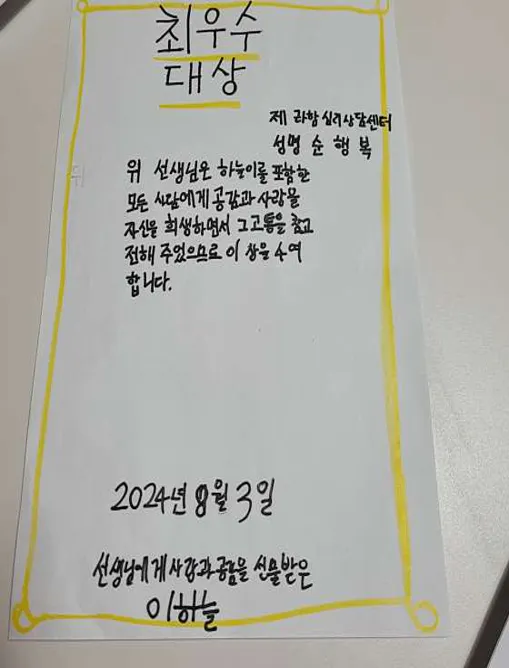 최우수
대상
제 과함심리상담센터
성명 순행복
위 선생님은 하늘이를 포함한
모든 사담에게 공감과 사랑을
자신을 희생하면서 그고통을 참고
전해 주었으므로 이 상을 수여
합니다.
2024년 8월 3일
선생님에게 사랑과 공감을 선물받은
이하늘